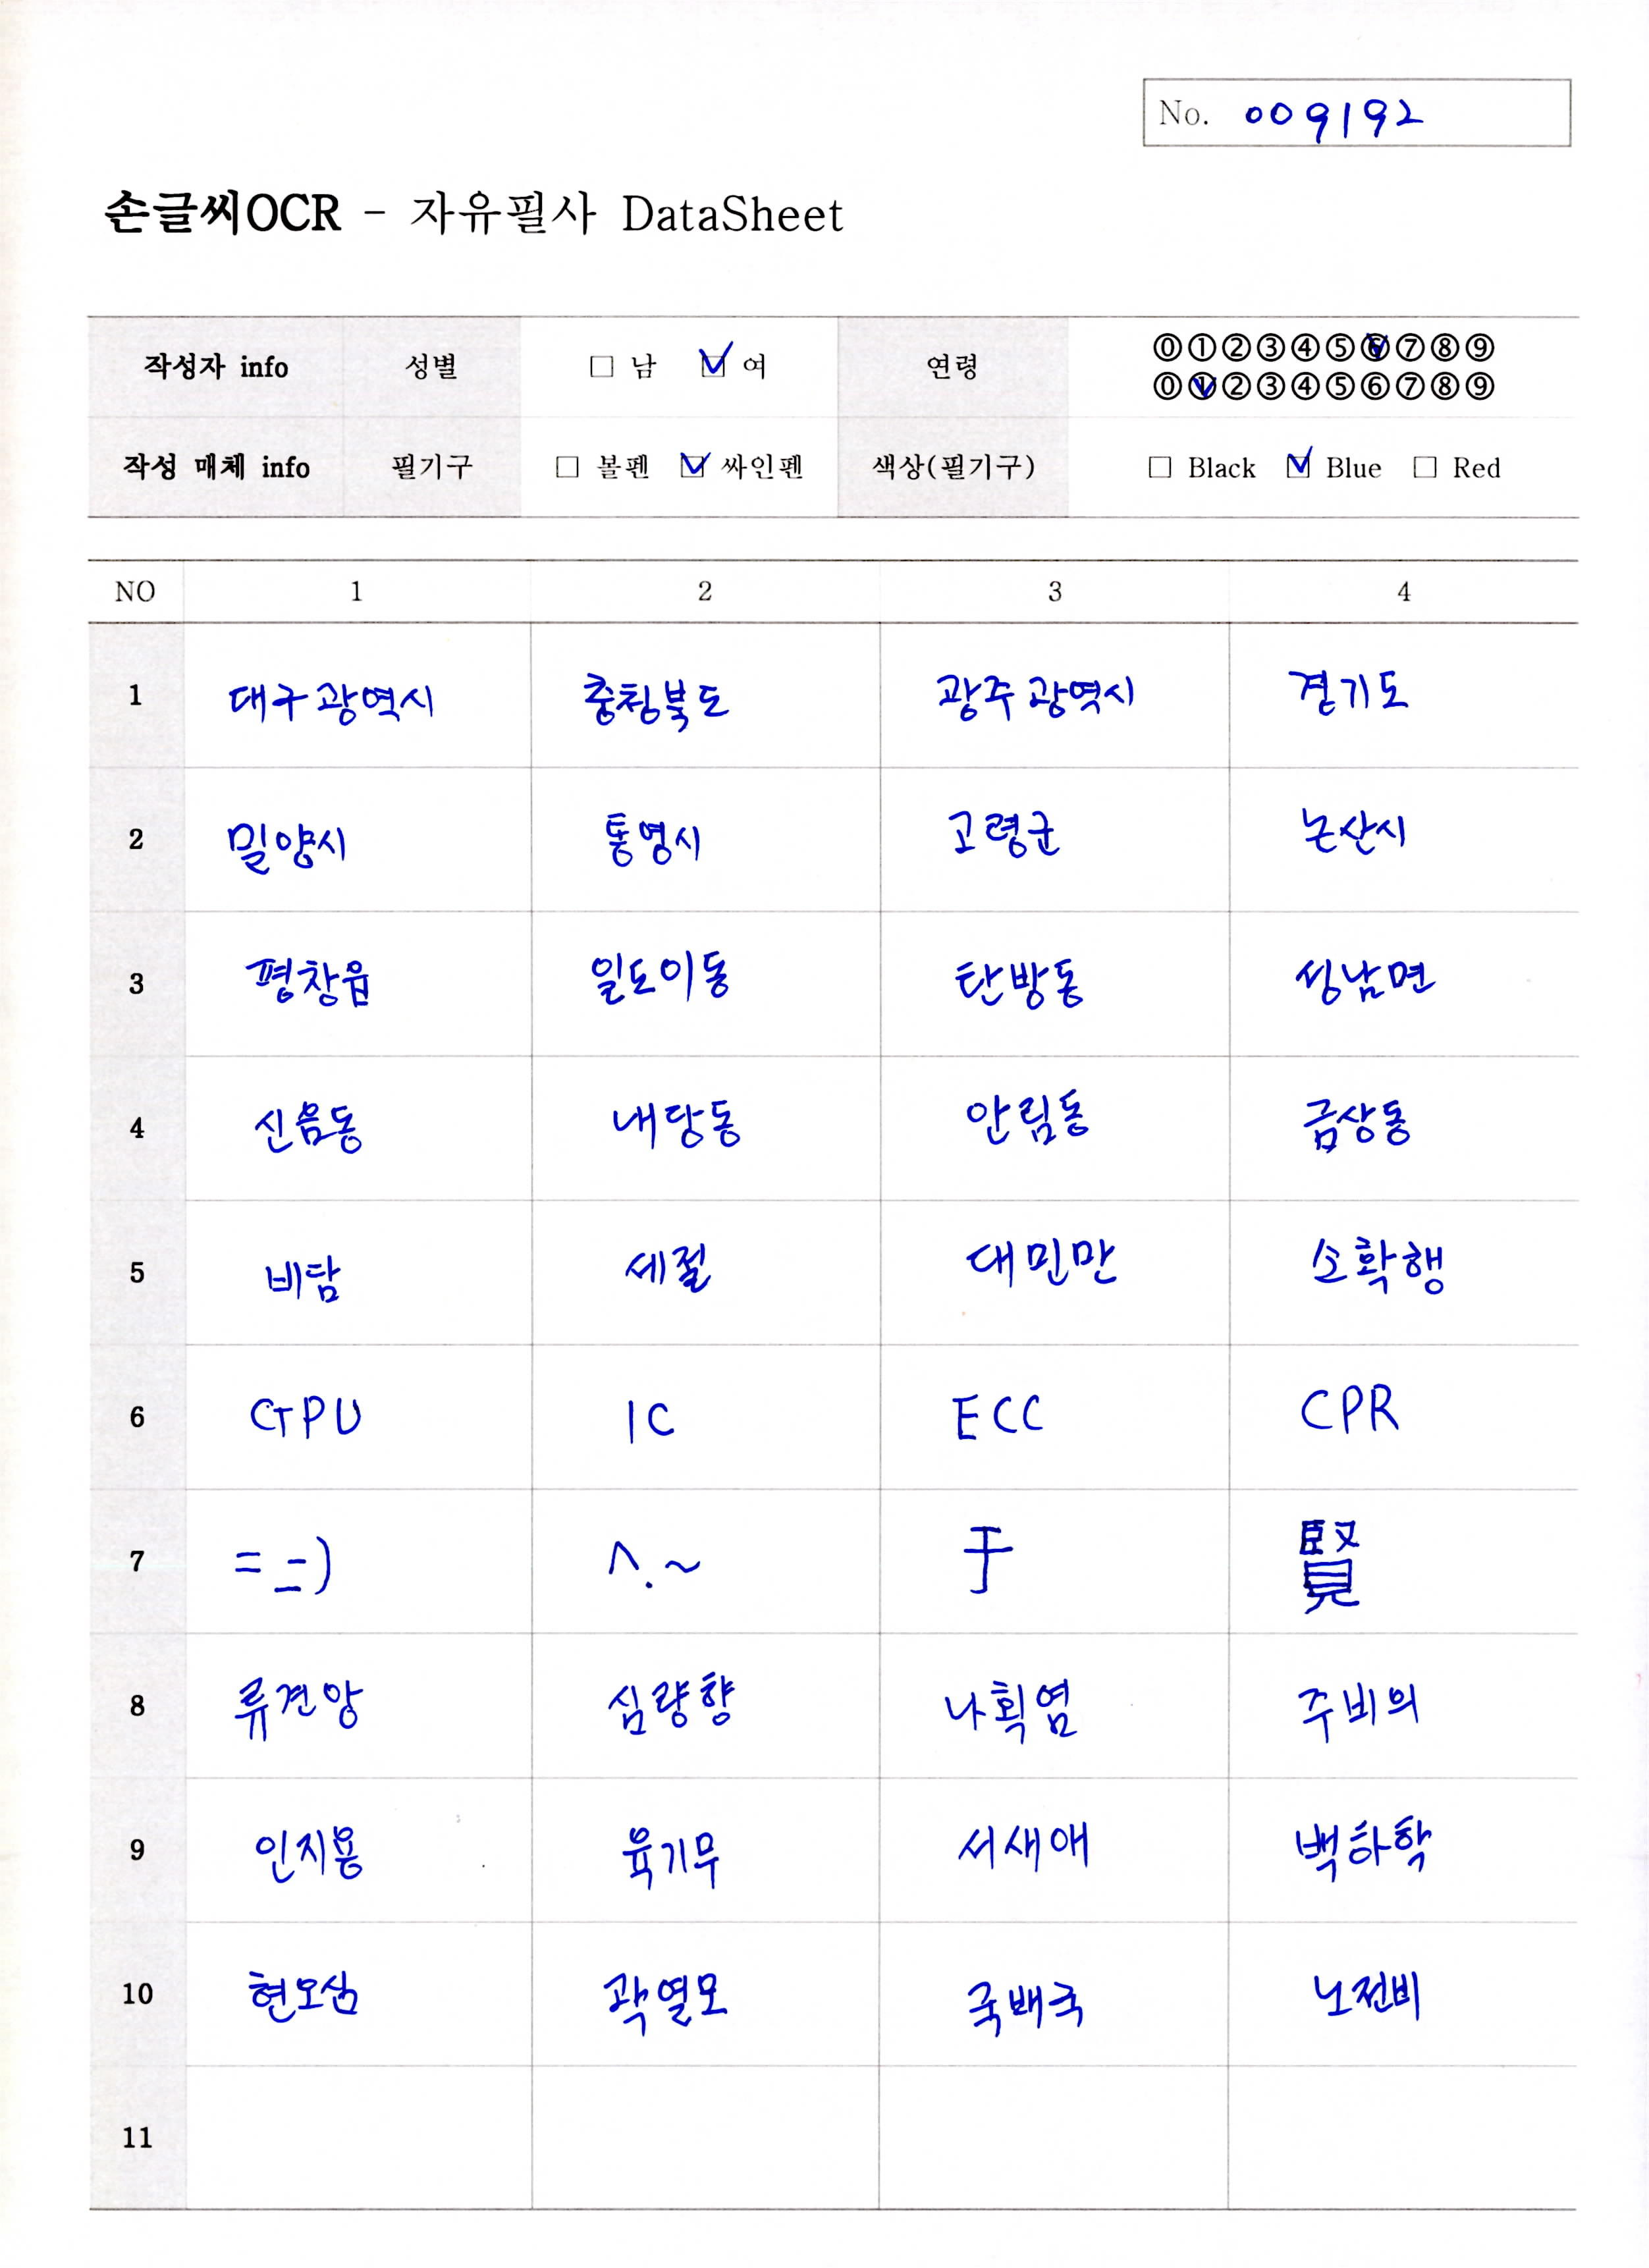 No. 009192
손글씨OCR - 자유필사 DataSheet
작성자 info 성별 □ 남 ☑ 여 연령 ⓪①②③④⑤⑥⑦⑧⑨
⓪①②③④⑤⑥⑦⑧⑨
작성 매체 info 필기구 □ 볼펜 ☑ 싸인펜 색상(필기구) □ Black ☑ Blue □ Red
NO 1 2 3 4
1 대구광역시 충청북도 광주광역시 경기도
2 밀양시 통영시 고령군 논산시
3 평창읍 일도이동 탄방동 성남면
4 신음동 내당동 안림동 금상동
5 비담 세절 대민만 소확행
6 GPU IC ECC CPR
7 = =) ^.~ 于 賢
8 류견앙 심량향 나획염 주비의
9 인지용 육기무 서새애 백하학
10 현오심 곽열모 국배국 노전비
11